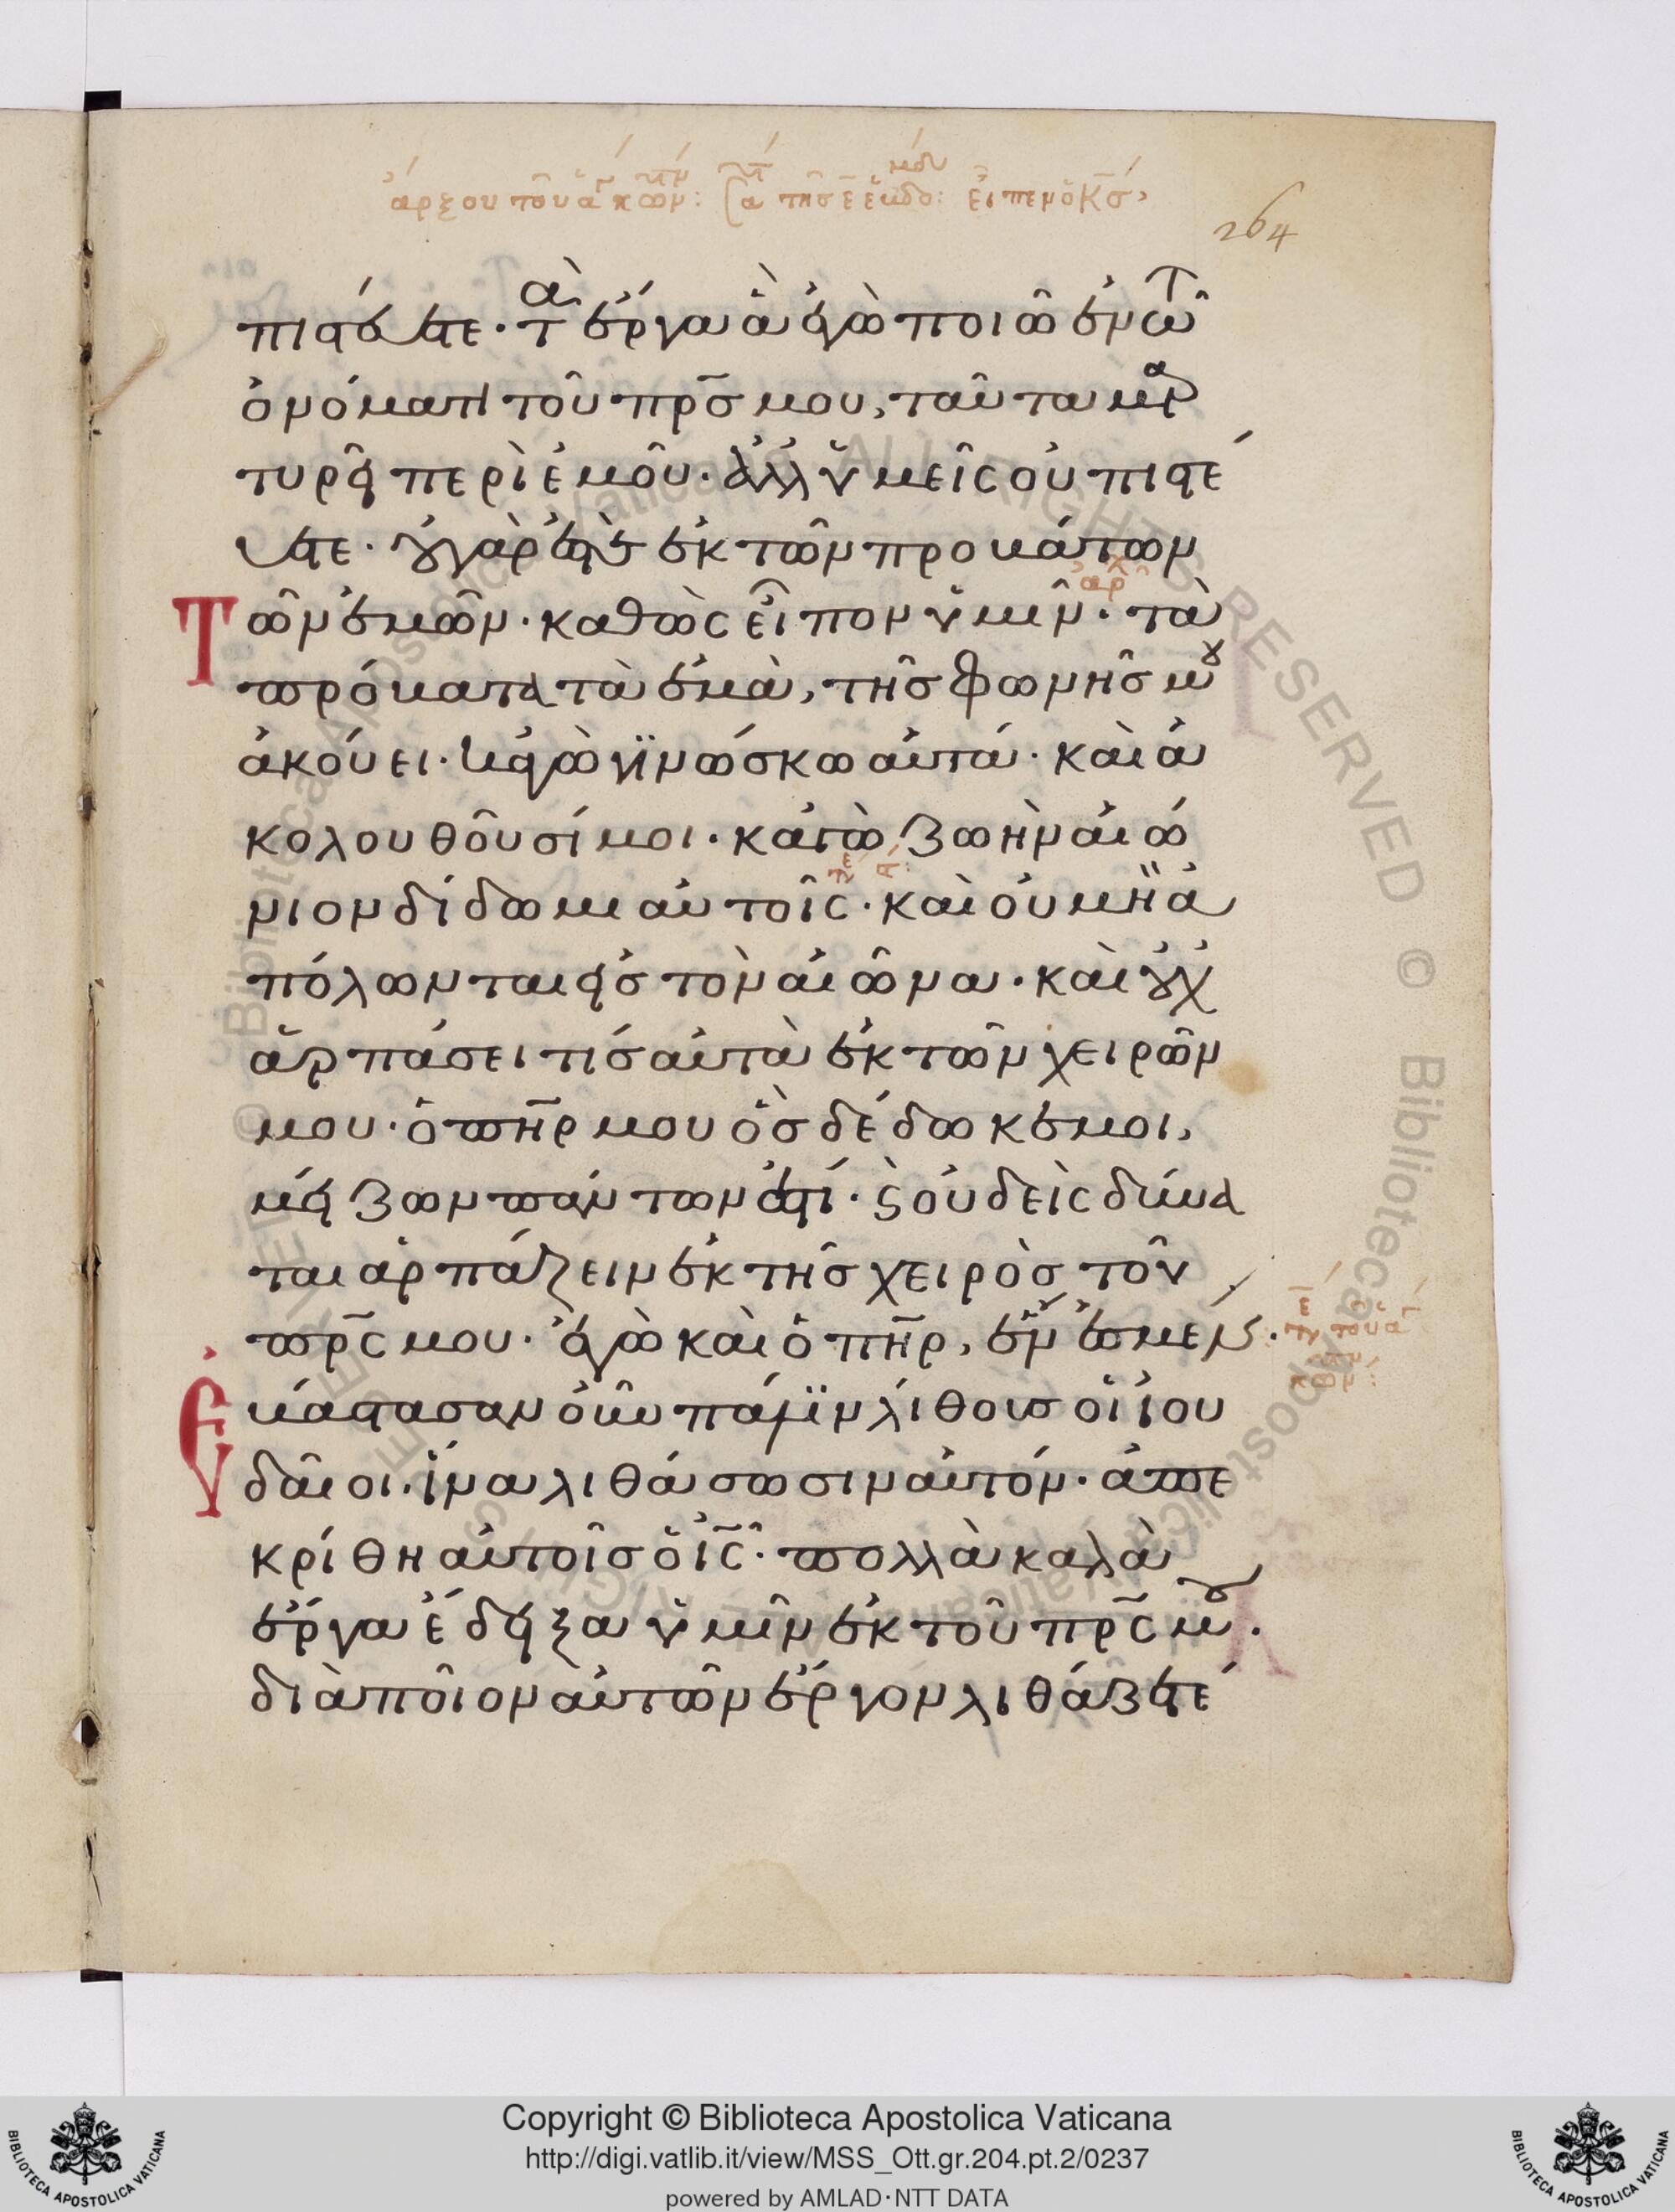 264
πιστεύετε· τὰ ἔργα ἃ ἐγὼ ποιῶ ἐν τῶ
ὀνόματι τοῦ πρ̅σ μου, ταῦτα μαρ
τυρεῖ περὶ ἐμοῦ· ἀλλ ὑμεῖς οὐ πιστέ
υετε· οὐ γὰρ ἐστὲ ἐκ τῶν προβάτων
τῶν ἐμῶν· καθὼς εἶπον ὑμῖν· τὰ
πρόβατα τὰ ἐμὰ, τῆς φωνῆς μου
ἀκούει· κἀγὼ γϊνώσκω αὐτά· καὶ ἀ
κολουθοῦσί μοι· κἀγὼ ζωὴν αἰώ
νιον δίδωμι αὐτοῖς· καὶ οὐ μὴ ἀ
πόλωνται εἰς τὸν αἰῶνα· καὶ οὐχ
ἁρπάσει τίς αὐτὰ ἐκ τῶν χειρῶν
μου· ὁ πη̅ρ μου ὃς δέδωκέ μοι,
μείζων πάντων ἐστί· ϛ οὐδεὶς δύνα
ται ἁρπάζειν ἐκ τῆς χειρὸς τοῦ
πρ̅ς μου· ἐγὼ καὶ ὁ πη̅ρ, ἕν ἐσμεν·
Ἐβάστασαν οὖν πάλϊν λίθους οἱ ἰου
δαῖοι· ἵνα λιθάσωσιν αὐτόν· ἀπε
κρίθη αὐτοῖς ὁ ι̅ς· πολλὰ καλὰ
ἔργα ἔδειξα ὑμῖν ἐκ τοῦ πρ̅ς μου·
διὰ ποῖον αὐτῶν ἔργον λιθάζετέ
© Biblioteca Apostolica Vaticana ALL RIGHTS RESERVED
Copyright © Biblioteca Apostolica Vaticana
http://digi.vatlib.it/view/MSS_Ott.gr.204.pt.2/0237
powered by AMLAD·NTT DATA
BIBLIOTECA APOSTOLICA VATICANA
BIBLIOTECA APOSTOLICA VATICANA